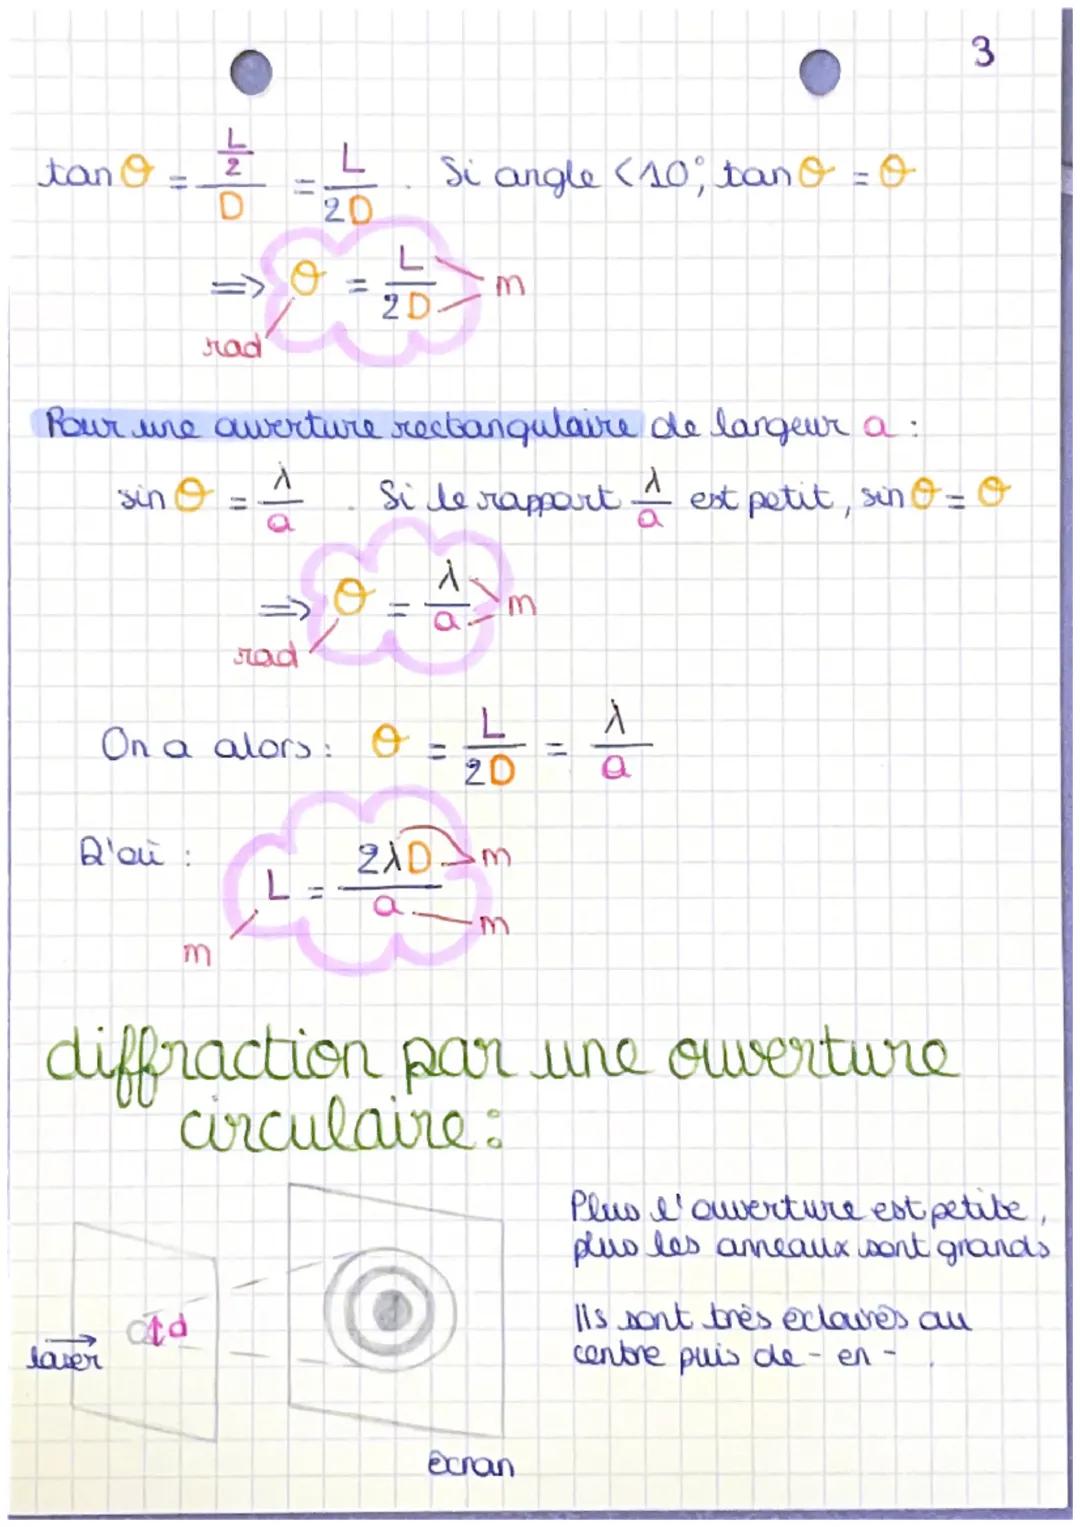 3
tan θ = (L/2)/D = L/2D . Si angle < 10°, tan θ = θ
=> θ = L/2D m
rad
Pour une ouverture rectangulaire de largeur a :
sin θ = λ/a . Si le rapport λ/a est petit, sin θ = θ
=> θ = λ/a m
rad
On a alors : θ = L/2D = λ/a
D'où : L = 2λD/a m
m
m
diffraction par une ouverture
circulaire :
Plus l'ouverture est petite,
plus les anneaux sont grands
Ils sont très éclairés au
centre puis de - en - .
d
laser
écran